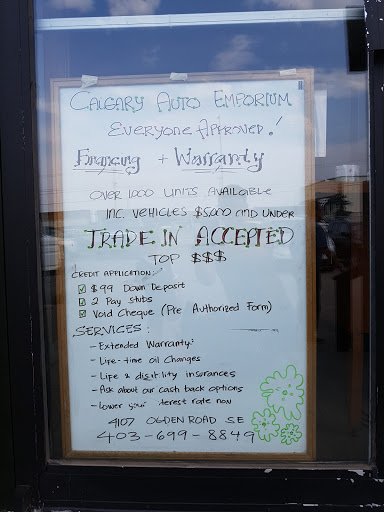 CALGARY AUTO EMPORIUM
EVERYONE APPROVED!
Financing + Warranty
OVER 1000 UNITS AVAILABLE
INC. VEHICLES $5,000 and UNDER
TRADE IN ACCEPTED
TOP $$$
CREDIT APPLICATION:
$99 Down Deposit
2 Pay Stubs
Void Cheque (Pre Authorized Form)
SERVICES:
- Extended Warranty:
- Life-time oil Changes
- Life & disability insurances
- Ask about our cash back options
- Lower your terest rate now
4107 OGDEN ROAD SE
403-699-8849